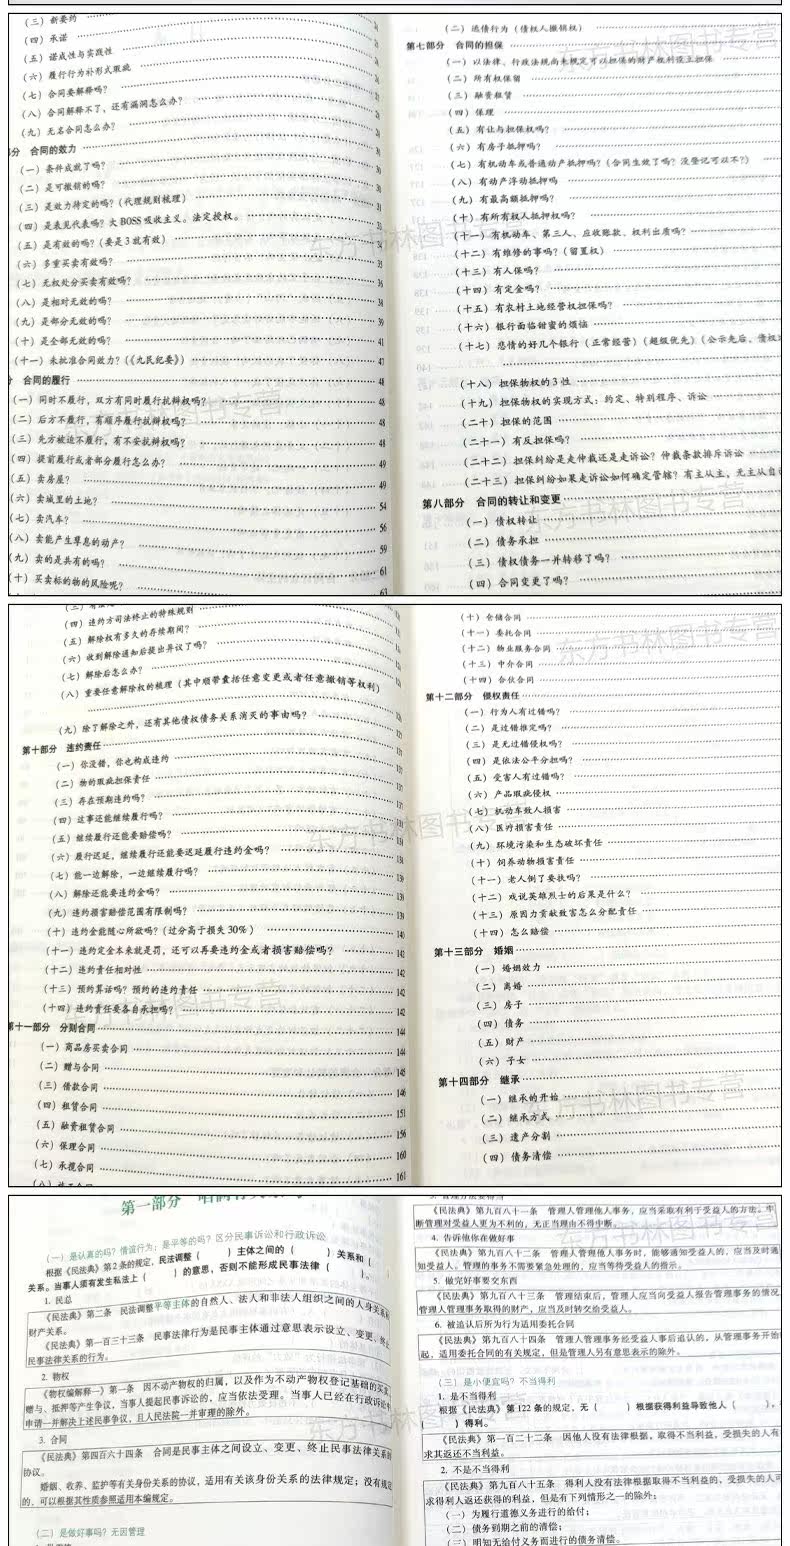 (三) 新要约
(四) 承诺
(五) 诺成性与实践性
(六) 履行行为补形式瑕疵
(七) 合同要解释吗?
(八) 合同解释不了,还有漏洞怎么办?
(九) 无名合同怎么办?
分 合同的效力
(一) 条件成就了吗? 30
(二) 是可撤销的吗? 30
(三) 是效力待定的吗?(代理规则梳理) 31
(四) 是表见代表吗?大BOSS吸收主义。法定授权。
(五) 是有效的吗?(要是3就有效)
(六) 多重买卖有效吗? 35
(七) 无权处分买卖有效吗? 36
(八) 是相对无效的吗? 38
(九) 是部分无效的吗? 39
(十) 是全部无效的吗? 41
(十一) 未批准合同效力?(《九民纪要》) 47
合同的履行 48
(一) 同时不履行,双方有同时履行抗辩权吗? 48
(二) 后方不履行,有顺序履行抗辩权吗? 48
(三) 先方被迫不履行,有不安抗辩权吗? 48
(四) 提前履行或者部分履行怎么办? 49
(五) 卖房屋? 49
(六) 卖城里的土地? 54
(七) 卖汽车? 56
(八) 卖能产生孳息的动产? 59
(九) 卖的是共有的吗? 61
(十) 买卖标的物的风险呢? 63
(二) 逃债行为(债权人撤销权)
第七部分 合同的担保
(一) 以法律、行政法规尚未规定可以担保的财产权利设立担保
(二) 所有权保留
(三) 融资租赁
(四) 保理
(五) 有让与担保权吗?
(六) 有房子抵押吗?
(七) 有机动车或普通动产抵押吗?(合同生效了吗?没登记可以不?)
(八) 有动产浮动抵押吗
(九) 有最高额抵押吗?
(十) 有所有权人抵押权吗?
(十一) 有机动车、第三人、应收账款、权利出质吗?
(十二) 有维修的事吗?(留置权)
(十三) 有人保吗?
(十四) 有定金吗?
(十五) 有农村土地经营权担保吗?
(十六) 银行面临甜蜜的烦恼
(十七) 悲情的好几个银行(正常经营)(超级优先)(公示先后,债权
(十八) 担保物权的3性
(十九) 担保物权的实现方式:约定、特别程序、诉讼
(二十) 担保的范围
(二十一) 有反担保吗?
(二十二) 担保纠纷是走仲裁还是走诉讼?仲裁条款排斥诉讼
(二十三) 担保纠纷如果走诉讼如何确定管辖?有主从主,无主从自
第八部分 合同的转让和变更
(一) 债权转让
(二) 债务承担
(三) 债权债务一并转移了吗?
(四) 合同变更了吗?
(四) 违约方司法终止的特殊规则
(五) 解除权有多久的存续期间?
(六) 收到解除通知后提出异议了吗?
(七) 解除后怎么办?
(八) 重要任意解除权的梳理(其中顺带囊括任意变更或者任意撤销等权利)
(九) 除了解除之外,还有其他债权债务关系消灭的事由吗?
第十部分 违约责任
(一) 你没错,你也构成违约
(二) 物的瑕疵担保责任
(三) 存在预期违约吗?
(四) 这事还能继续履行吗?
(五) 继续履行还能要赔偿吗?
(六) 履行迟延,继续履行还能要迟延履行违约金吗?
(七) 能一边解除,一边继续履行吗?
(八) 解除还能要违约金吗?
(九) 违约损害赔偿范围有限制吗? 139
(十) 违约金能随心所欲吗?(过分高于损失30%) 140
(十一) 违约定金本来就是罚,还可以再要违约金或者损害赔偿吗? 142
(十二) 违约责任相对性 142
(十三) 预约算话吗?预约的违约责任 142
(十四) 违约责任要各自承担吗? 142
第十一部分 分则合同 144
(一) 商品房买卖合同 144
(二) 赠与合同 145
(三) 借款合同 146
(四) 租赁合同 151
(五) 融资租赁合同 156
(六) 保理合同 160
(七) 承揽合同 161
(十) 仓储合同
(十一) 委托合同
(十二) 物业服务合同
(十三) 中介合同
(十四) 合伙合同
第十二部分 侵权责任
(一) 行为人有过错吗?
(二) 是过错推定吗?
(三) 是无过错侵权吗?
(四) 是依法公平分担吗?
(五) 受害人有过错吗?
(六) 产品瑕疵侵权
(七) 机动车致人损害
(八) 医疗损害责任
(九) 环境污染和生态破坏责任
(十) 饲养动物损害责任
(十一) 老人倒了要扶吗?
(十二) 戏说英雄烈士的后果是什么?
(十三) 原因力贡献致害怎么分配责任
(十四) 怎么赔偿
第十三部分 婚姻
(一) 婚姻效力
(二) 离婚
(三) 房子
(四) 债务
(五) 财产
(六) 子女
第十四部分 继承
(一) 继承的开始
(二) 继承方式
(三) 遗产分割
(四) 债务清偿
第一部分
(一) 是认真的吗?情谊行为;是平等的吗?区分民事诉讼和行政诉讼
根据《民法典》第2条的规定,民法调整( )主体之间的( )关系和( )
关系。当事人须有发生私法上( )的意思,否则不能形成民事法律( )。
1. 民总
《民法典》第二条 民法调整平等主体的自然人、法人和非法人组织之间的人身关系和
财产关系。
《民法典》第一百三十三条 民事法律行为是民事主体通过意思表示设立、变更、终止
民事法律关系的行为。
2. 物权
《物权编解释一》第一条 因不动产物权的归属,以及作为不动产物权登记基础的买卖、
赠与、抵押等产生争议,当事人提起民事诉讼的,应当依法受理。当事人已经在行政诉讼中
申请一并解决上述民事争议,且人民法院一并审理的除外。
3. 合同
《民法典》第四百六十四条 合同是民事主体之间设立、变更、终止民事法律关系的
协议。
婚姻、收养、监护等有关身份关系的协议,适用有关该身份关系的法律规定;没有规定
的,可以根据其性质参照适用本编规定。
(二) 是做好事吗?无因管理
《民法典》第九百八十一条 管理人管理他人事务,应当采取有利于受益人的方法。中
断管理对受益人更为不利的,无正当理由不得中断。
4. 告诉他你在做好事
《民法典》第九百八十二条 管理人管理他人事务时,能够通知受益人的,应当及时通
知受益人。管理的事务不需要紧急处理的,应当等待受益人的指示。
5. 做完好事要交东西
《民法典》第九百八十三条 管理结束后,管理人应当向受益人报告管理事务的情况
管理人管理事务取得的财产,应当及时转交给受益人。
6. 被追认后所为行为适用委托合同
《民法典》第九百八十四条 管理人管理事务经受益人事后追认的,从管理事务开始
起,适用委托合同的有关规定,但是管理人另有意思表示的除外。
(三) 是小便宜吗?不当得利
1. 是不当得利
根据《民法典》第122条的规定,无( )根据获得利益导致他人( ),
( )得利。
《民法典》第一百二十二条 因他人没有法律根据,取得不当利益,受损失的人有
求其返还不当利益。
2. 不是不当得利
《民法典》第九百八十五条 得利人没有法律根据取得不当利益的,受损失的人可
求得利人返还获得的利益,但是有下列情形之一的除外:
(一) 为履行道德义务进行的给付;
(二) 债务到期之前的清偿;
(三) 明知无给付义务而进行的债务清偿。
东方书林图书专营